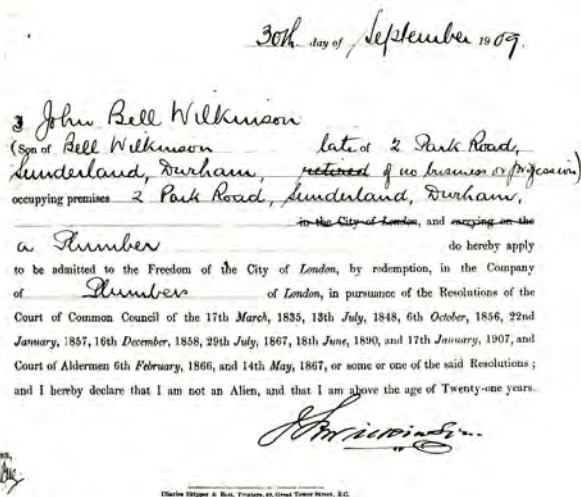 30th day of September 1909.
I John Bell Wilkinson
(Son of Bell Wilkinson late of 2 Park Road,
Sunderland, Durham, retired of no business or profession)
occupying premises 2 Park Road, Sunderland, Durham,
in the City of London, and carrying on the
a Plumber do hereby apply
to be admitted to the Freedom of the City of London, by redemption, in the Company
of Plumbers of London, in pursuance of the Resolutions of the
Court of Common Council of the 17th March, 1835, 13th July, 1848, 6th October, 1856, 22nd
January, 1857, 16th December, 1858, 29th July, 1867, 18th June, 1890, and 17th January, 1907, and
Court of Aldermen 6th February, 1866, and 14th May, 1867, or some or one of the said Resolutions;
and I hereby declare that I am not an Alien, and that I am above the age of Twenty-one years.
J B Wilkinson.
ss,
Charles Skipper & East, Printers, 49, Great Tower Street, E.C.